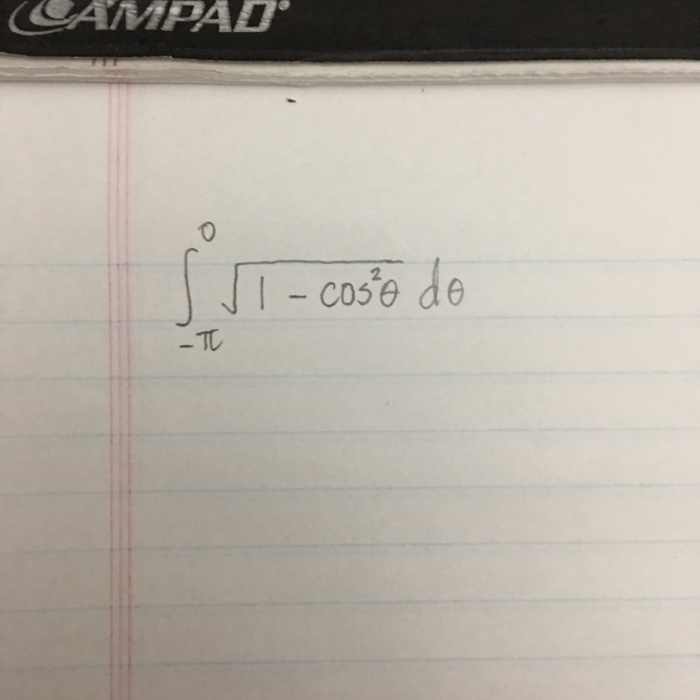 CAMPAD®
∫_{-π}^{0} √(1 - cos²θ) dθ